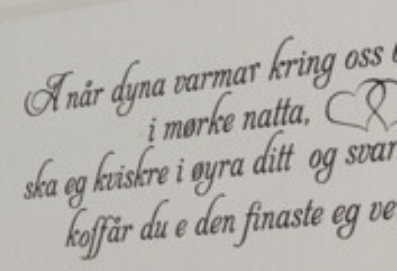 Å når dyna varmar kring oss
i mørke natta,
ska eg kviskre i øyra ditt og svar
koffår du e den finaste eg ve